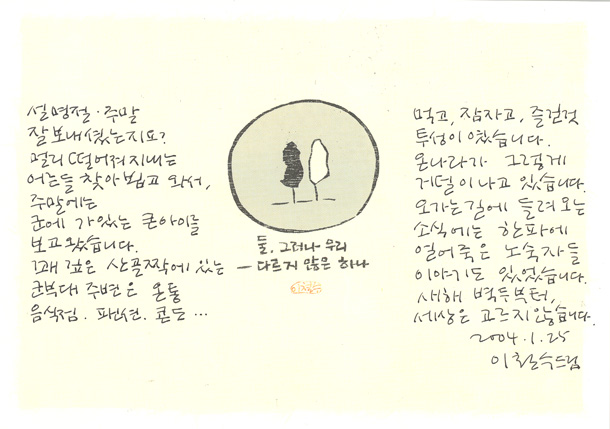 설 명절 · 주말
잘 보내셨는지요?
멀리 떨어져 지내는
어른들 찾아 뵙고 와서,
주말에는
군에 가 있는 큰아이를
보고 왔습니다.
꽤 깊은 산골짝에 있는
군부대 주변은 온통
음식점. 팬션. 콘도 ...
둘. 그러나 우리
— 다르지 않은 하나
먹고, 잠자고, 즐길것
투성이였습니다.
온나라가 그렇게
거덜이 나고 있습니다.
오가는 길에 들려오는
소식에는 한파에
얼어죽은 노숙자들
이야기도 있었습니다.
새해 벽두부터,
세상은 고르지 않습니다.
2004.1.25
이철수드림